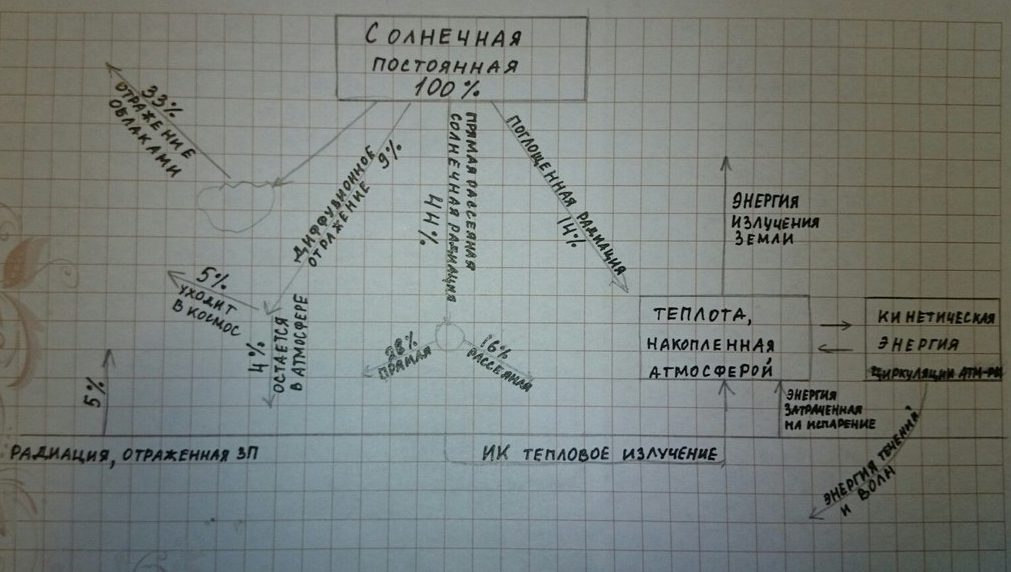 СОЛНЕЧНАЯ
ПОСТОЯННАЯ
100%
33%
ОТРАЖЕНИЕ
ОБЛАКАМИ
ДИФФУЗИОННОЕ 9%
ОТРАЖЕНИЕ
ПРЯМАЯ РАССЕЯНАЯ
СОЛНЕЧНАЯ РАДИАЦИЯ
44%
ПОГЛОЩЕННАЯ РАДИАЦИЯ
14%
ЭНЕРГИЯ
ИЗЛУЧЕНИЯ
ЗЕМЛИ
5%
УХОДИТ
В КОСМОС
4%
ОСТАЕТСЯ
В АТМОСФЕРЕ
28%
ПРЯМАЯ
16%
РАССЕЯНАЯ
ТЕПЛОТА,
НАКОПЛЕННАЯ
АТМОСФЕРОЙ
КИНЕТИЧЕСКАЯ
ЭНЕРГИЯ
ЦИРКУЛЯЦИИ АТМ-РЫ
ЭНЕРГИЯ
ЗАТРАЧЕННАЯ
НА ИСПАРЕНИЕ
5%
РАДИАЦИЯ, ОТРАЖЕННАЯ ЗП
ИК ТЕПЛОВОЕ ИЗЛУЧЕНИЕ
ЭНЕРГИЯ ТЕЧЕНИЙ
И ВОЛН